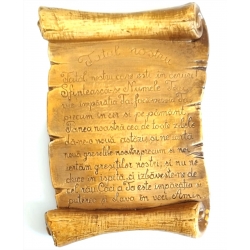 Tatăl nostru
Tatăl nostru care ești în ceruri
Sfințească-se Numele Tău
vie împărăția Ta, facă-se voia Ta
precum în cer și pe pământ
dă-ne nouă astăzi și ne iartă
nouă greșelile noastre precum și noi
iertăm greșiților noștri, și nu ne
duce în ispită, ci izbăvește-ne de
cel rău Căci a Ta este împărăția și
puterea și slava în veci Amin